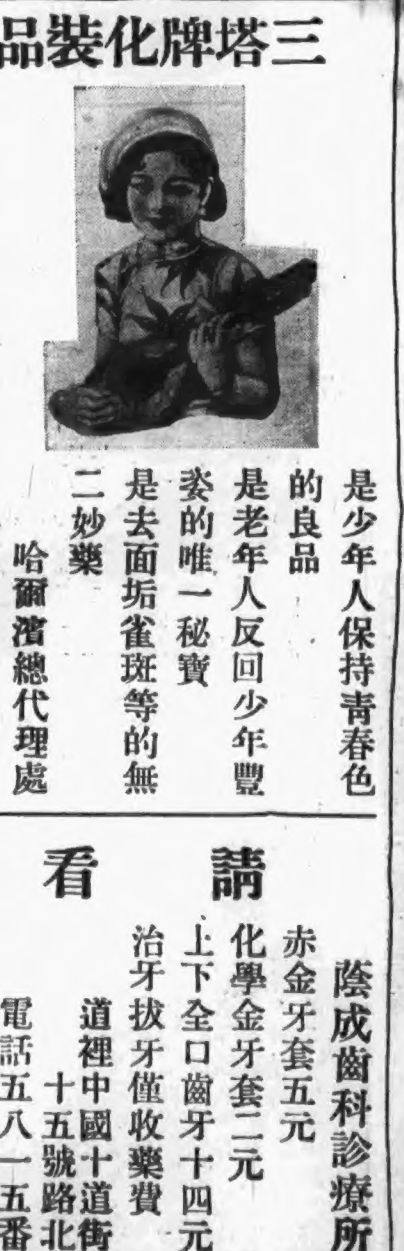 三塔牌化裝品
是少年人保持青春色
的良品
是老年人反回少年豐
姿的唯一秘寶
是去面垢雀斑等的無
二妙藥
哈爾濱總代理處
請看
蔭成齒科診療所
赤金牙套五元
化學金牙套二元
上下全口齒牙十四元
治牙拔牙僅收藥費
道裡中國十道街
十五號路北
電話五八一五番